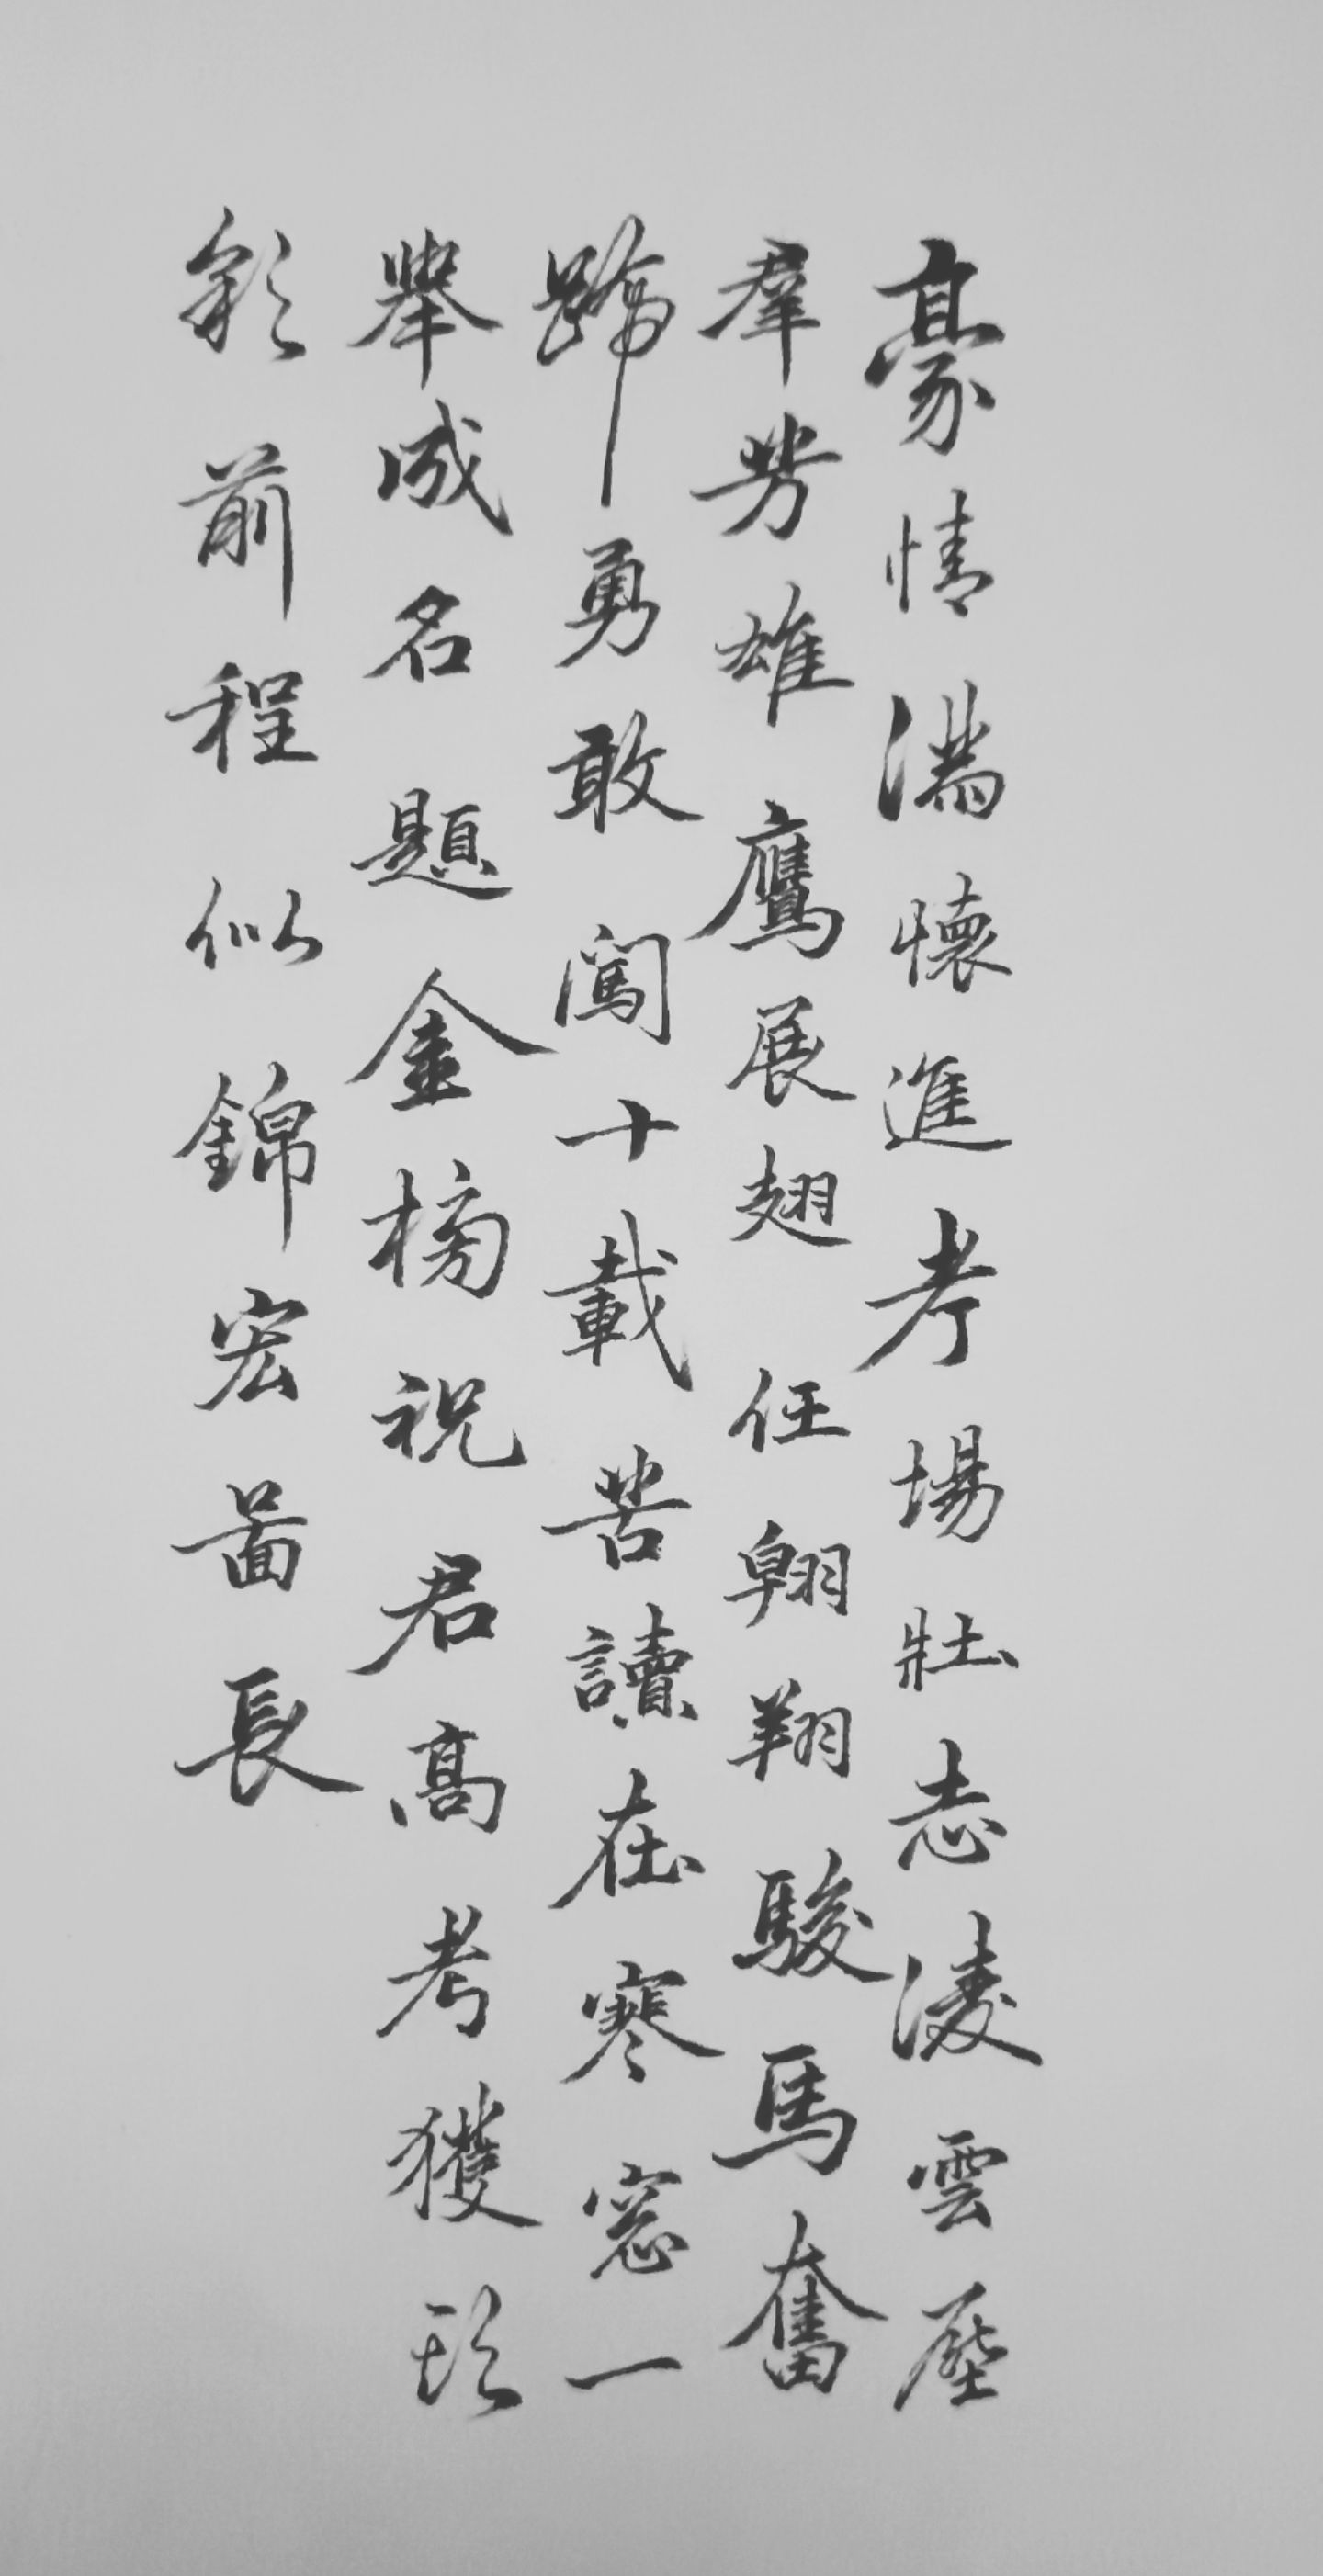 豪情滿懷進考場壯志凌雲壓
羣芳雄鷹展翅任翱翔駿馬奮
蹄勇敢闖十載苦讀在寒窓一
舉成名題金榜祝君高考獲頭
彩前程似錦宏圖長